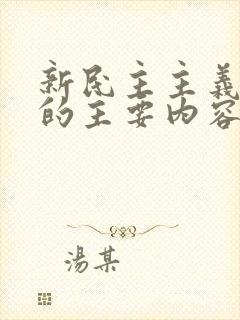 新民主主義
的主要内容
湯某